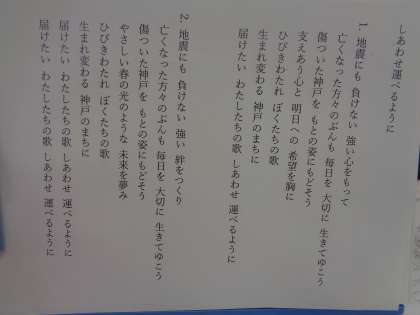 しあわせ運べるように
1. 地震にも 負けない 強い心をもって
亡くなった方々のぶんも 毎日を 大切に 生きてゆこう
傷ついた神戸を もとの姿にもどそう
支えあう心と 明日への 希望を胸に
ひびきわたれ ぼくたちの歌
生まれ変わる 神戸のまちに
届けたい わたしたちの歌 しあわせ 運べるように
2. 地震にも 負けない 強い 絆をつくり
亡くなった方々のぶんも 毎日を 大切に 生きてゆこう
傷ついた神戸を もとの姿にもどそう
やさしい春の光のような 未来を夢み
ひびきわたれ ぼくたちの歌
生まれ変わる 神戸のまちに
届けたい わたしたちの歌 しあわせ 運べるように
届けたい わたしたちの歌 しあわせ 運べるように